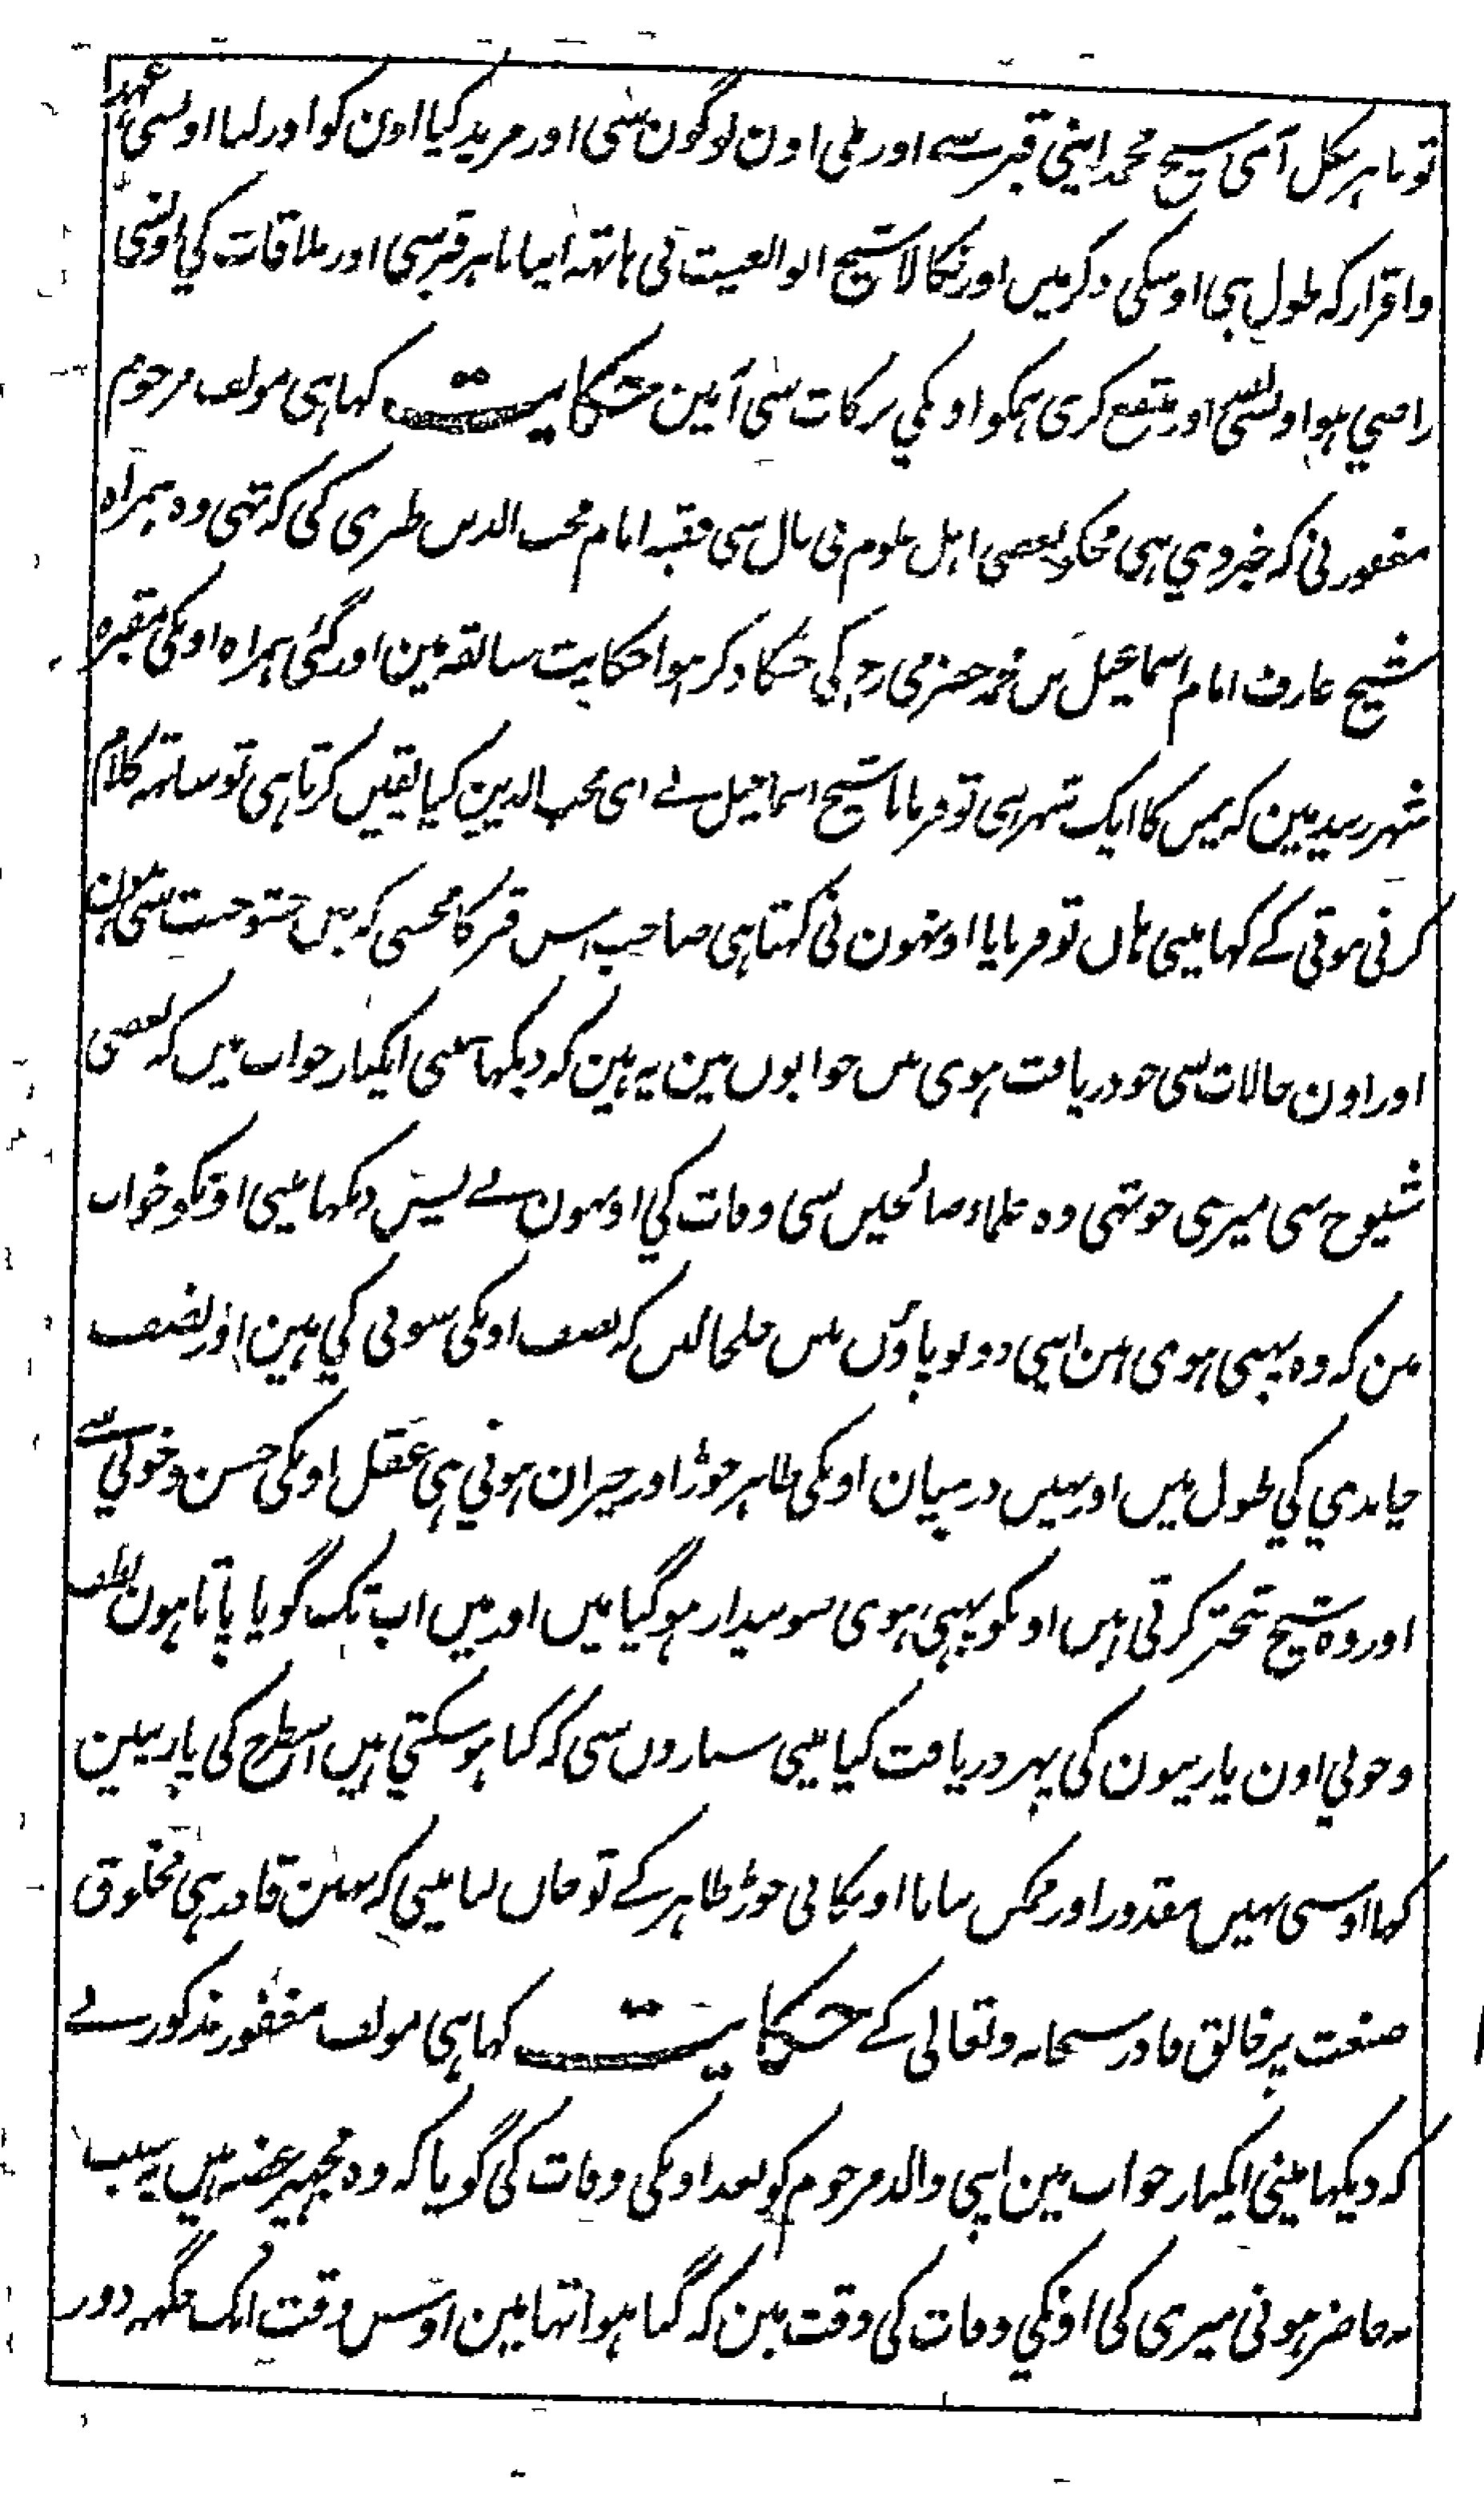 تو باہر نکل آئی شیخ محمد اپنی قبر سے اور ملی اون لوگون سنی اور مرید کیا اون کو اور لیا اونسی عہد
واقرار کہ طول ہی اوسکی ذکر میں اور نکالا شیخ ابو الغیث نی ہاتھ اپنا باہر قبر سی اور ملاقات کی اونسی
راضی ہوا اونسی اور متمتع کری ہمکو اونکی برکات سنی آمین حکایت کہا ہی مولف مرحوم
مغفور نی کہ خبر دی ہی مجکو بعضی اہل علوم نی حال سی فقیہ امام محب الدین طبری کی کہ تہی وہ ہمراہ
شیخ عارف امام اسماعیل بن محمد حضرمی رح کی جنکا ذکر ہوا حکایت سابقہ مین اور گئی ہمراہ اونکی مقبرہ
شہر زبید مین کہ یمن کا ایک شہر ہی تو فرمایا شیخ اسماعیل نے ای محب الدین کیا یقین کرتا ہی تو ساتہ کلام
کرنی موتی کے کہا مینی ہاں تو فرمایا اونہون نی کہتا ہی صاحب اس قبر کا مجسی کہ میں حشو جنت سی ہون
اور اون حالات سی جو دریافت ہوی ہیں خوابوں مین یہ ہین کہ دیکہا مینی ایکبار خواب میں کہ بعضی
شیوخ سی میری جو تہی وہ علماء صالحین سی وفات کی اونہون نے پس دیکہا مینی اونکو خواب
مین کہ وہ پہنی ہوی ہین اپنی دونو پاؤں میں خلخالین کہ نصف اونکی سونی کی ہین اور نصف
چاندی کی طول میں اور نہیں درمیان اونکی ظاہر جوڑ اور حیران ہونی ہی عقل اونکی حسن و خوبی سے
اور وہ شیخ تبختر کرتی ہین اونکو پہنی ہوی سو بیدار ہو گیا میں اور میں اب تک گویا پاتا ہون لطف
و خوبی اون پازیبون کی پہر دریافت کیا مینی سناروں سی کہ کیا ہو سکتی ہیں اسطرح کی پازیبین
کہا اونہی نہیں مقدور اور ممکن بنانا اونکا بی جوڑ ظاہر کے تو جان لیا مینی کہ نہین قادر ہی مخلوق
صنعت پر خالق قادر سبحانہ و تعالی کے حکایت کہا ہی مولف مغفور مذکور نے
کہ دیکہا مینی ایکبار خواب مین اپنی والد مرحوم کو بعد اونکی وفات کی گویا کہ وہ مجہپر غصہ ہیں بسبب
نہ حاضر ہونی میری کی اونکی وفات کی وقت مین کہ گیا ہوا تہا مین اوس وقت ایک جگہہ دور